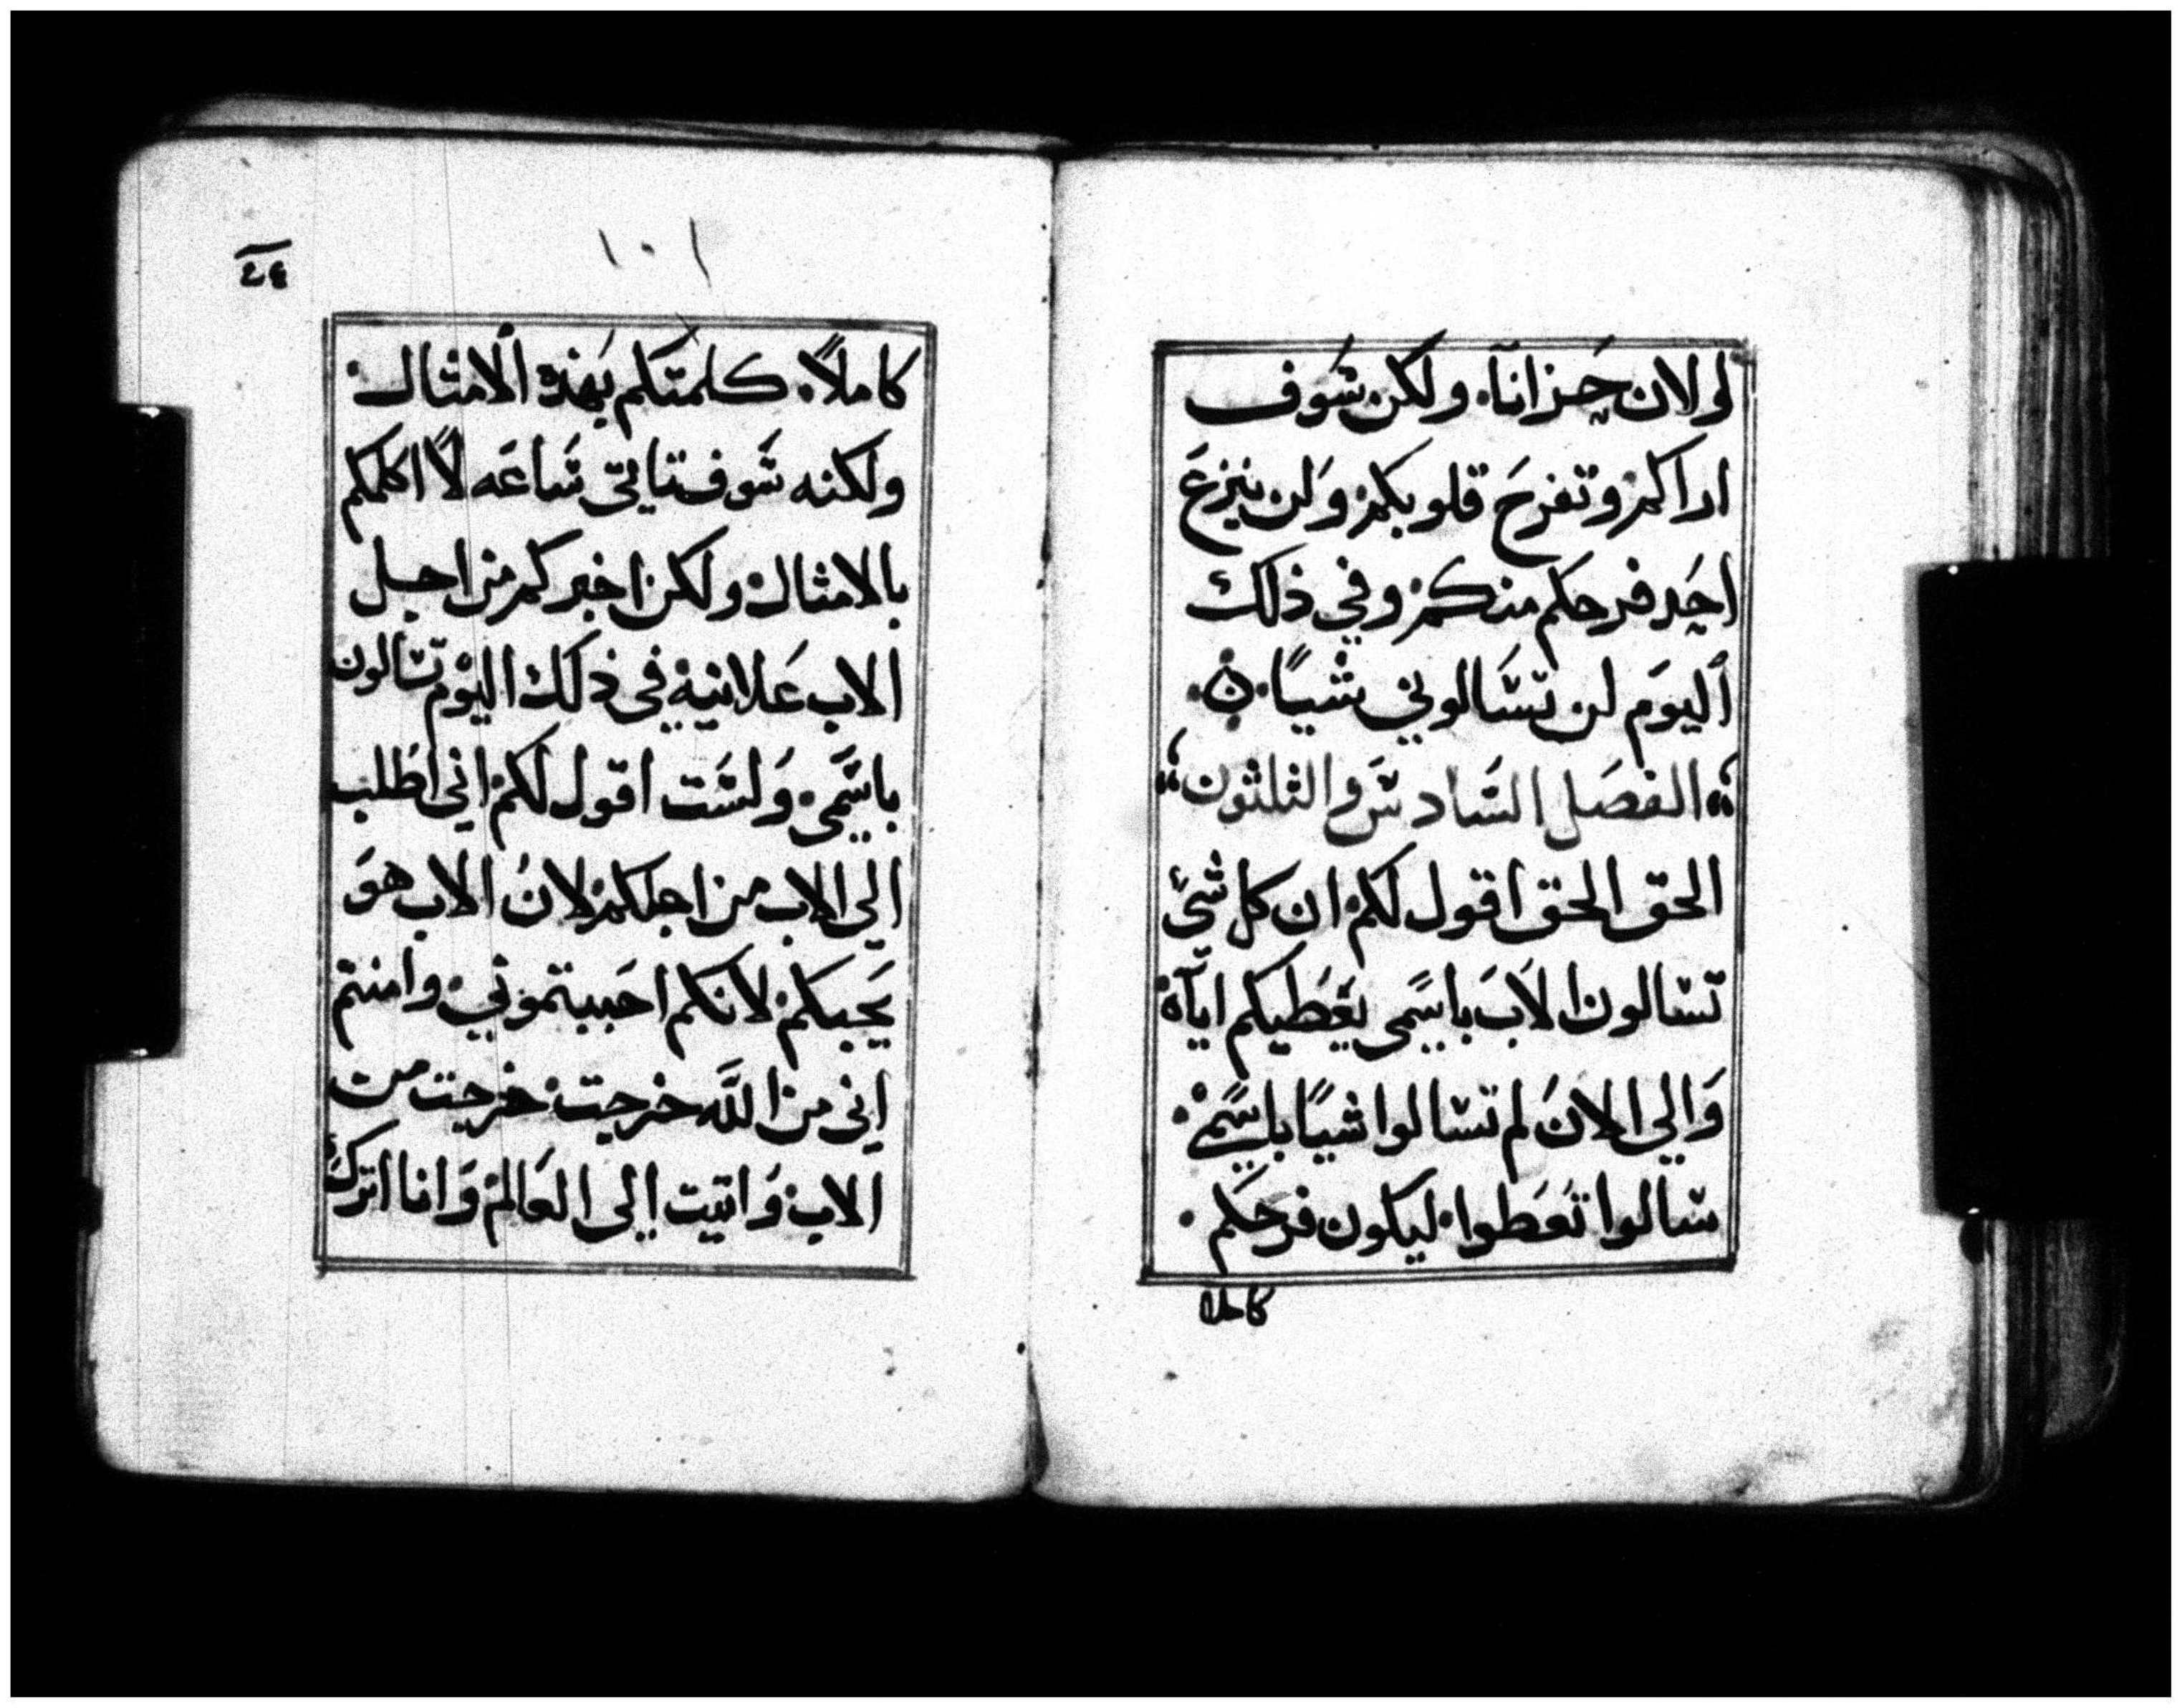 لو الان حزانآ. ولكن سَوف
اراكم وتفرحَ قلوبكم وَلن ينزعَ
احَد فرحكم منكم وفي ذلك
اليومَ لن تسَالوني شيًا ن
الفصَل السَادسَ والثلثون
الحق الحق اقول لكم ان كل شئ
تسالون الابَ باسمي يعَطيكم اياه
وَالي الانَ لم تسالوا شيًا باسَمي
سالوا تعَطوا ليكون فرحَكم
كاملا
١٠١
كاملاً. كلمتكم بهَذه الامثال
ولكنه سَوف تاتي سَاعَه لا اكلمكم
بالامثال ولكن اخبركم من اجل
الاب عَلانيةِ في ذلك اليوَم تسالون
باسَمي. وَلسَت اقول لكم اني اطَلب
الي الاب من اجلكم لانَ الاب هوَ
يَحبكم لانكم احَببتموني. وامنتم
اني من اللَّه خرجت خرجت من
الاب وَاتيت الي العَالم وَانا اترك